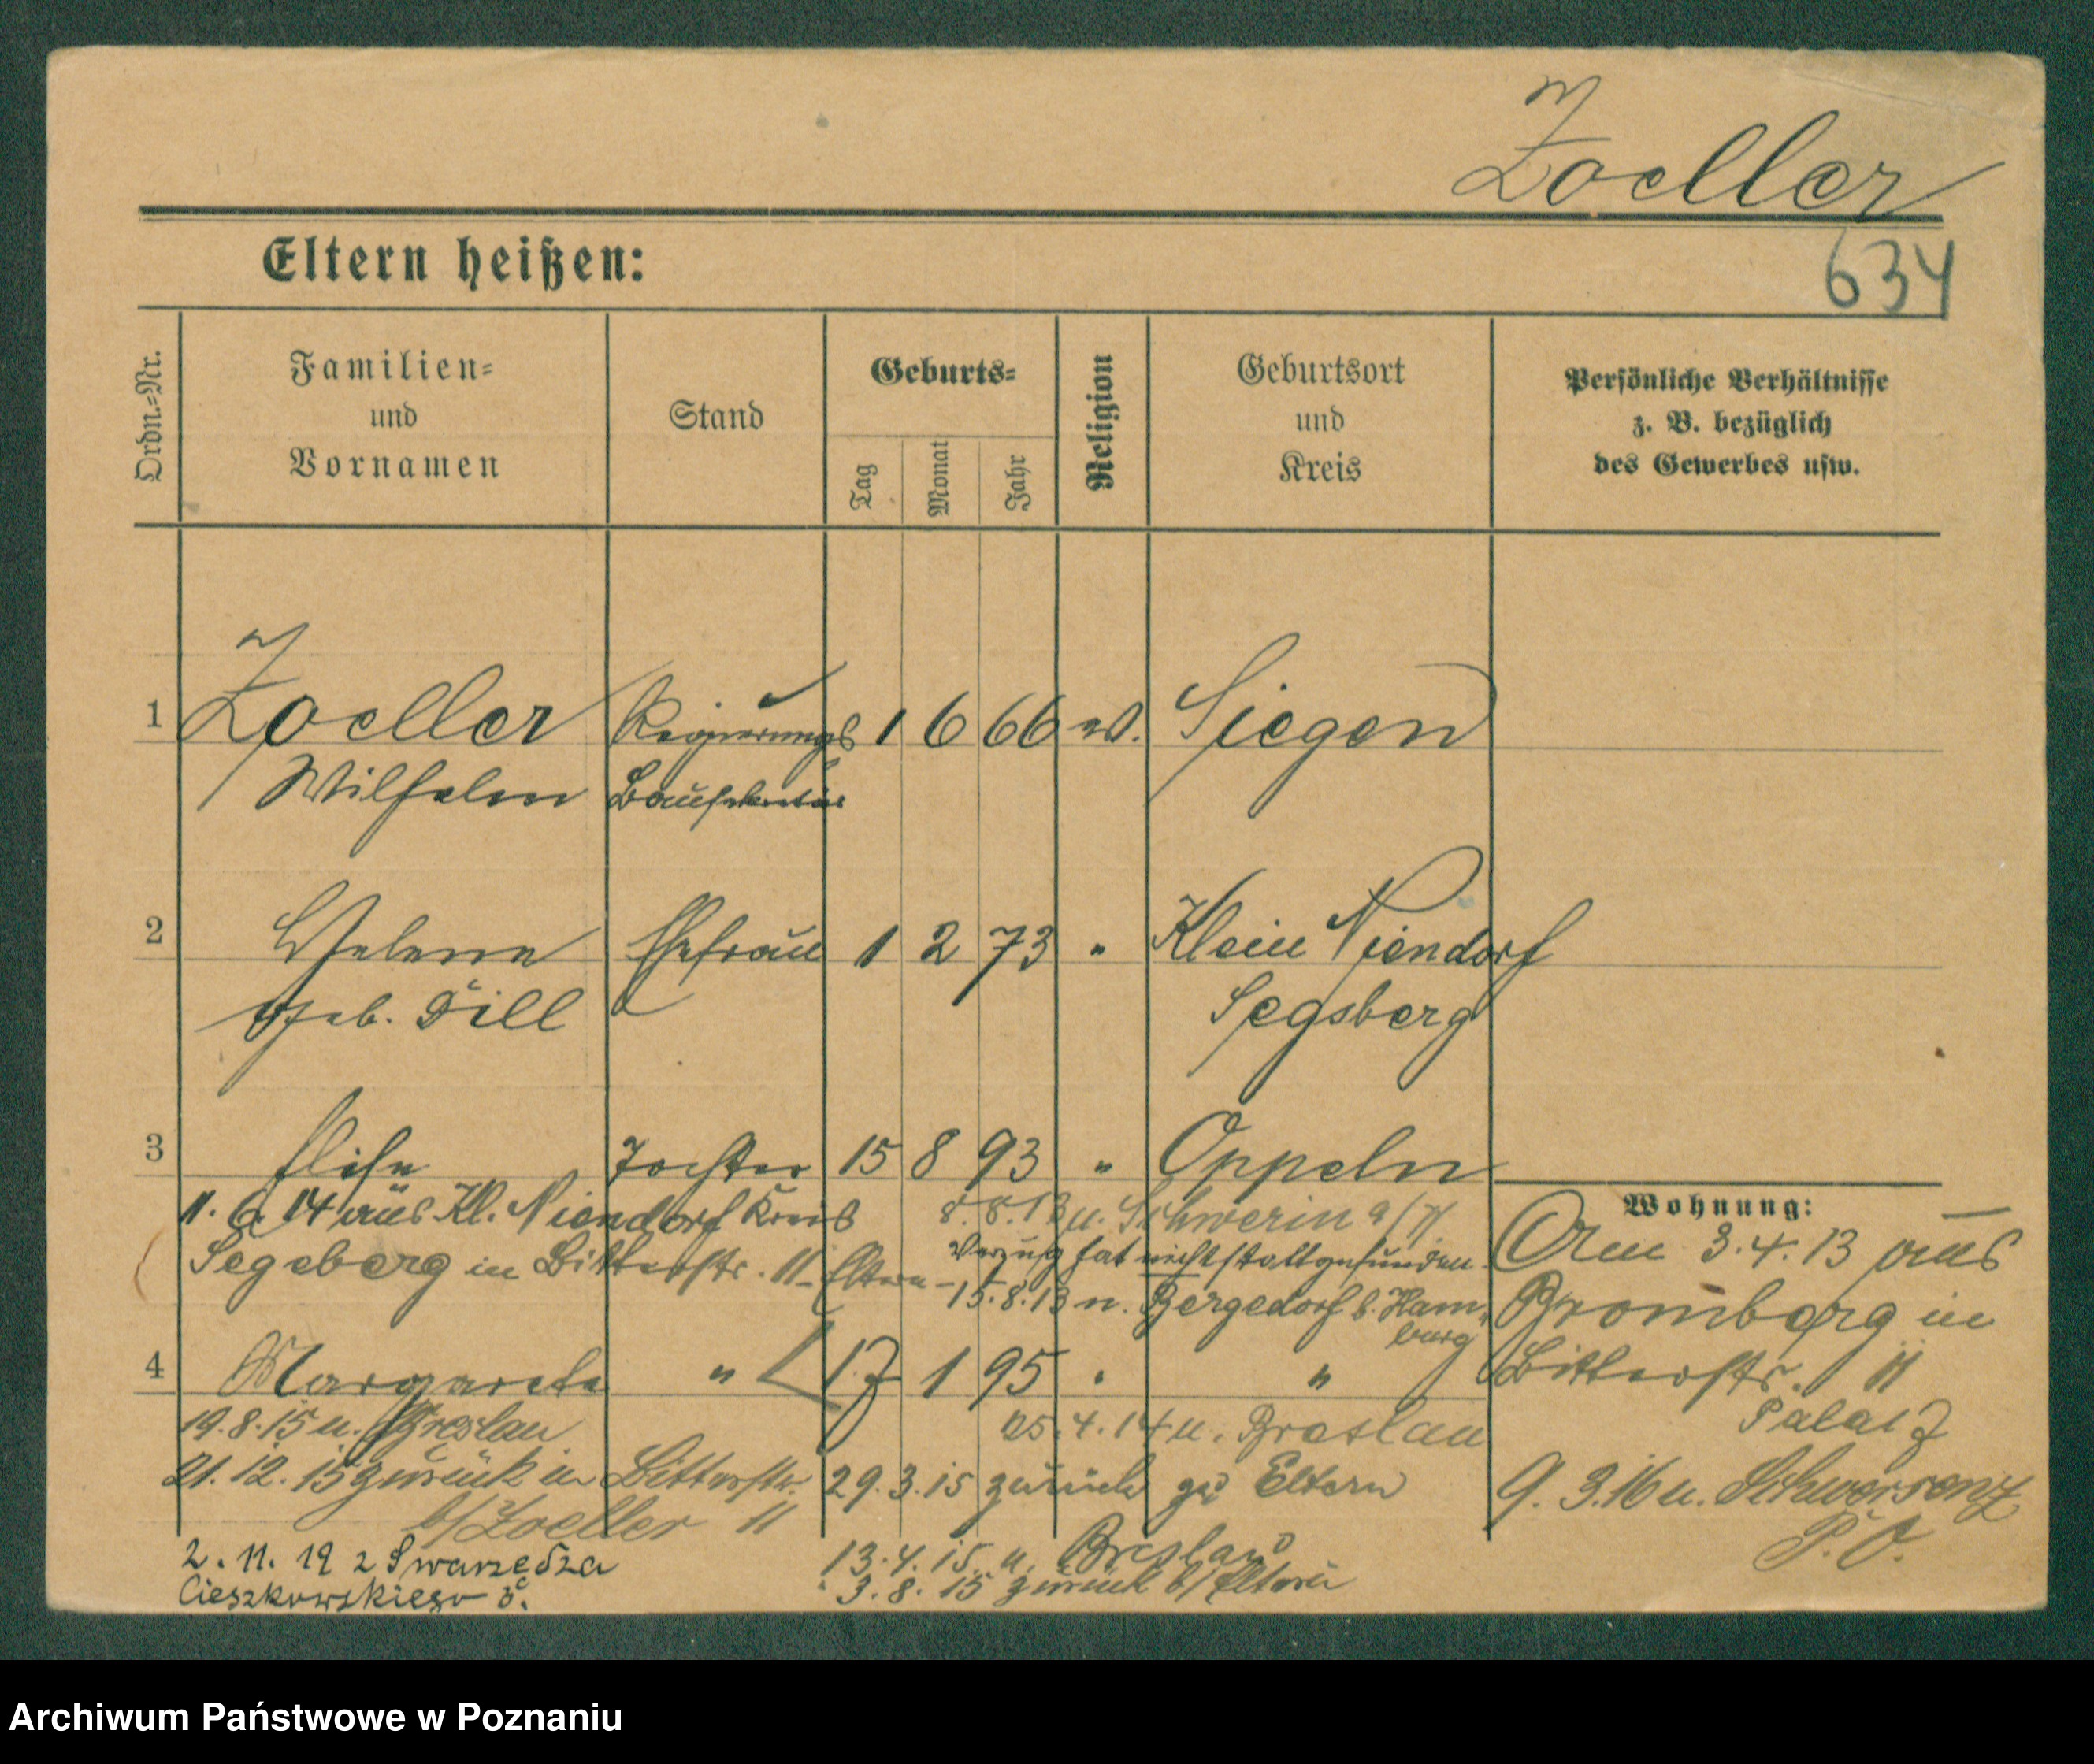 Zoeller
Eltern heißen:
634
Ordn.-Nr.
Familien-
und
Vornamen
Stand
Geburts-
Tag
Monat
Jahr
Religion
Geburtsort
und
Kreis
Persönliche Verhältnisse
z. B. bezüglich
des Gewerbes usw.
1 Zoeller Regierungs 1 6 66 ev. Siegen
Wilhelm Bausekretär
2 Helene Ehefrau 1 2 73 " Klein Niendorf
geb. Dill Segsberg
3 Elise Tochter 15 8 93 " Oppeln
11. 6. 14 aus Kl. Niendorf Kreis
Segeberg in Bitterstr. 11 - Eltern -
8. 8. 13 n. Schwerin a/W
Verzug hat nicht stattgefunden.
15. 8. 13 n. Bergedorf b. Ham-
burg
Wohnung:
Am 3. 4. 13 aus
Bromberg in
Bitterstr. 11
4 Margarete " 17 1 95 " "
19. 8. 15 n. Breslau
21. 12. 15 zurück in Bitterstr.
b/ Zoeller 11
25. 4. 14 n. Breslau
29. 3. 15 zurück zu Eltern
13. 4. 15. n. Breslau
3. 8. 15 zurück b/ Eltern
9. 3. 16 n. Schwersenz
P. O.
2. 11. 19 z Swarzędza
Cieszkowskiego
Archiwum Państwowe w Poznaniu